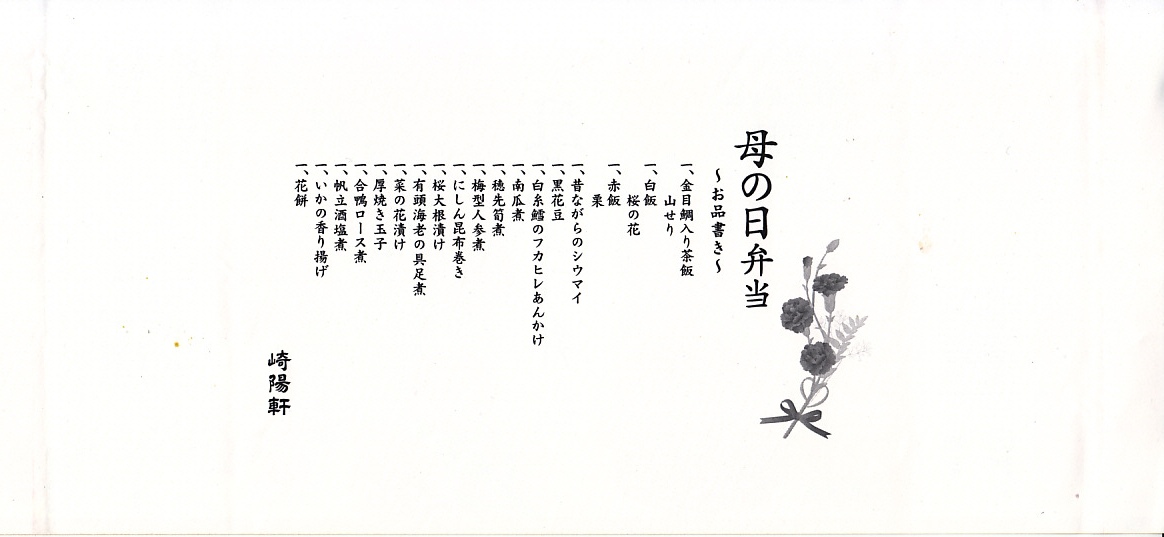 母の日弁当
～お品書き～
一、金目鯛入り茶飯
山せり
一、白飯
桜の花
一、赤飯
栗
一、昔ながらのシウマイ
一、黒花豆
一、白糸鱈のフカヒレあんかけ
一、南瓜煮
一、穂先筍煮
一、梅型人参煮
一、にしん昆布巻き
一、桜大根漬け
一、有頭海老の具足煮
一、菜の花漬け
一、厚焼き玉子
一、合鴨ロース煮
一、帆立酒塩煮
一、いかの香り揚げ
一、花餅
崎陽軒